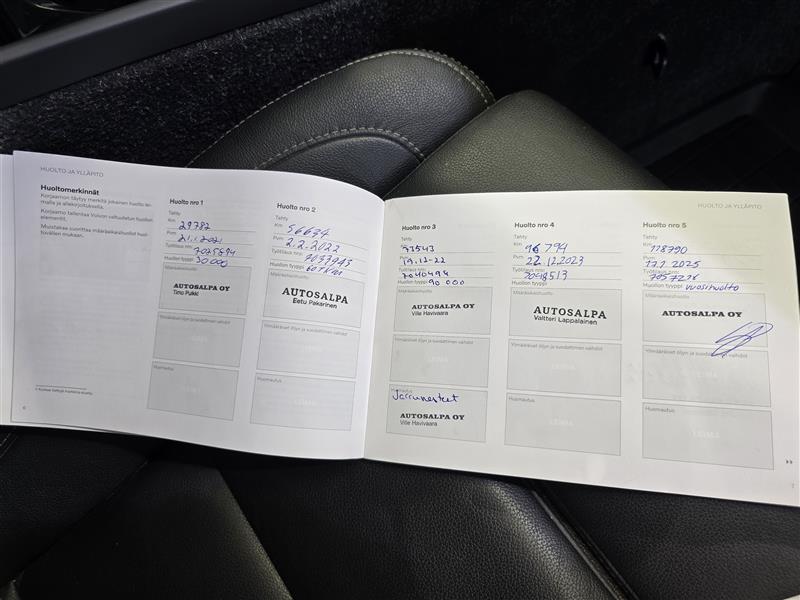 HUOLTO JA YLLÄPITO
Huoltomerkinnät
Korjaamon täytyy merkitä jokainen huolto lei-
malla ja allekirjoituksella.
Korjaamo tallentaa Volvon valtuutetun huollon
Muistakaa suorittaa määräaikaishuollot huol-
tovälien mukaan.
6
Huolto nro 1
Tehty
Km 29782
Pvm 21.1.2021
Työtilaus nro:
Huollon tyyppi 30 000
Määräaikaishuolto
AUTOSALPA OY
Timo Pukki
Ylimääräiset öljyn ja suodattimen vaihdot
Huomautus
Huolto nro 2
Tehty
Km 56634
Pvm 2.2.2022
Työtilaus nro:
Huollon tyyppi 60TKM
Määräaikaishuolto
AUTOSALPA
Eetu Pakarinen
Ylimääräiset öljyn ja suodattimen vaihdot
Huomautus
LEIMA
HUOLTO JA YLLÄPITO
Huolto nro 3
Tehty
Km
Pvm 19.12-22
Työtilaus nro: 7040494
Huollon tyyppi 90 000
Määräaikaishuolto
AUTOSALPA OY
Ville Havivaara
Ylimääräiset öljyn ja suodattimen vaihdot
LEIMA
Huomautus
Jarrunesteet
AUTOSALPA OY
Ville Havivaara
Huolto nro 4
Tehty
Km 96 794
Pvm 22.12.2023
Työtilaus nro: 7048513
Huollon tyyppi
Määräaikaishuolto
AUTOSALPA
Valtteri Lappalainen
Ylimääräiset öljyn ja suodattimen vaihdot
LEIMA
Huomautus
LEIMA
Huolto nro 5
Tehty
Km 118790
Pvm 17.1.2025
Työtilaus nro:
Huollon tyyppi vuosihuolto
Määräaikaishuolto
AUTOSALPA OY
Ylimääräiset öljyn ja suodattimen vaihdot
LEIMA
Huomautus
LEIMA
7